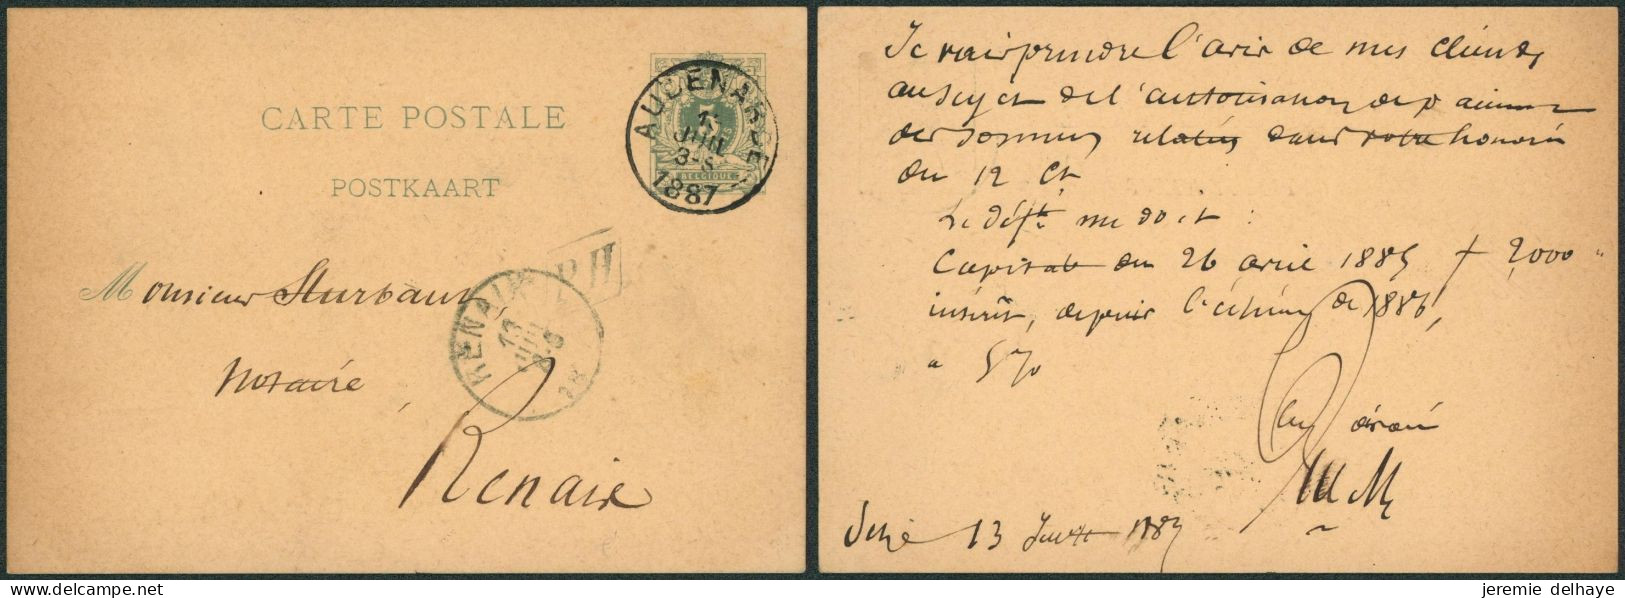 CARTE POSTALE
POSTKAART
5
BELGIQUE
AUDENARDE
13
JUIL
3-S
1887
Monsieur Sturbaut
notaire,
Renaix
RENAIX
13
JUIL
P.H
Je vais prendre l'avis de mes clients
au sujet de l'autorisation de
des sommes relatées dans votre honorée
du 12 Ct
Le déft me doit :
Capital du 26 avril 1885 f 2,000 "
intérêt, depuis l'échéance de 1886,
" 5 %
13 Juillet 1887
delcampe.net
jeremie delhaye